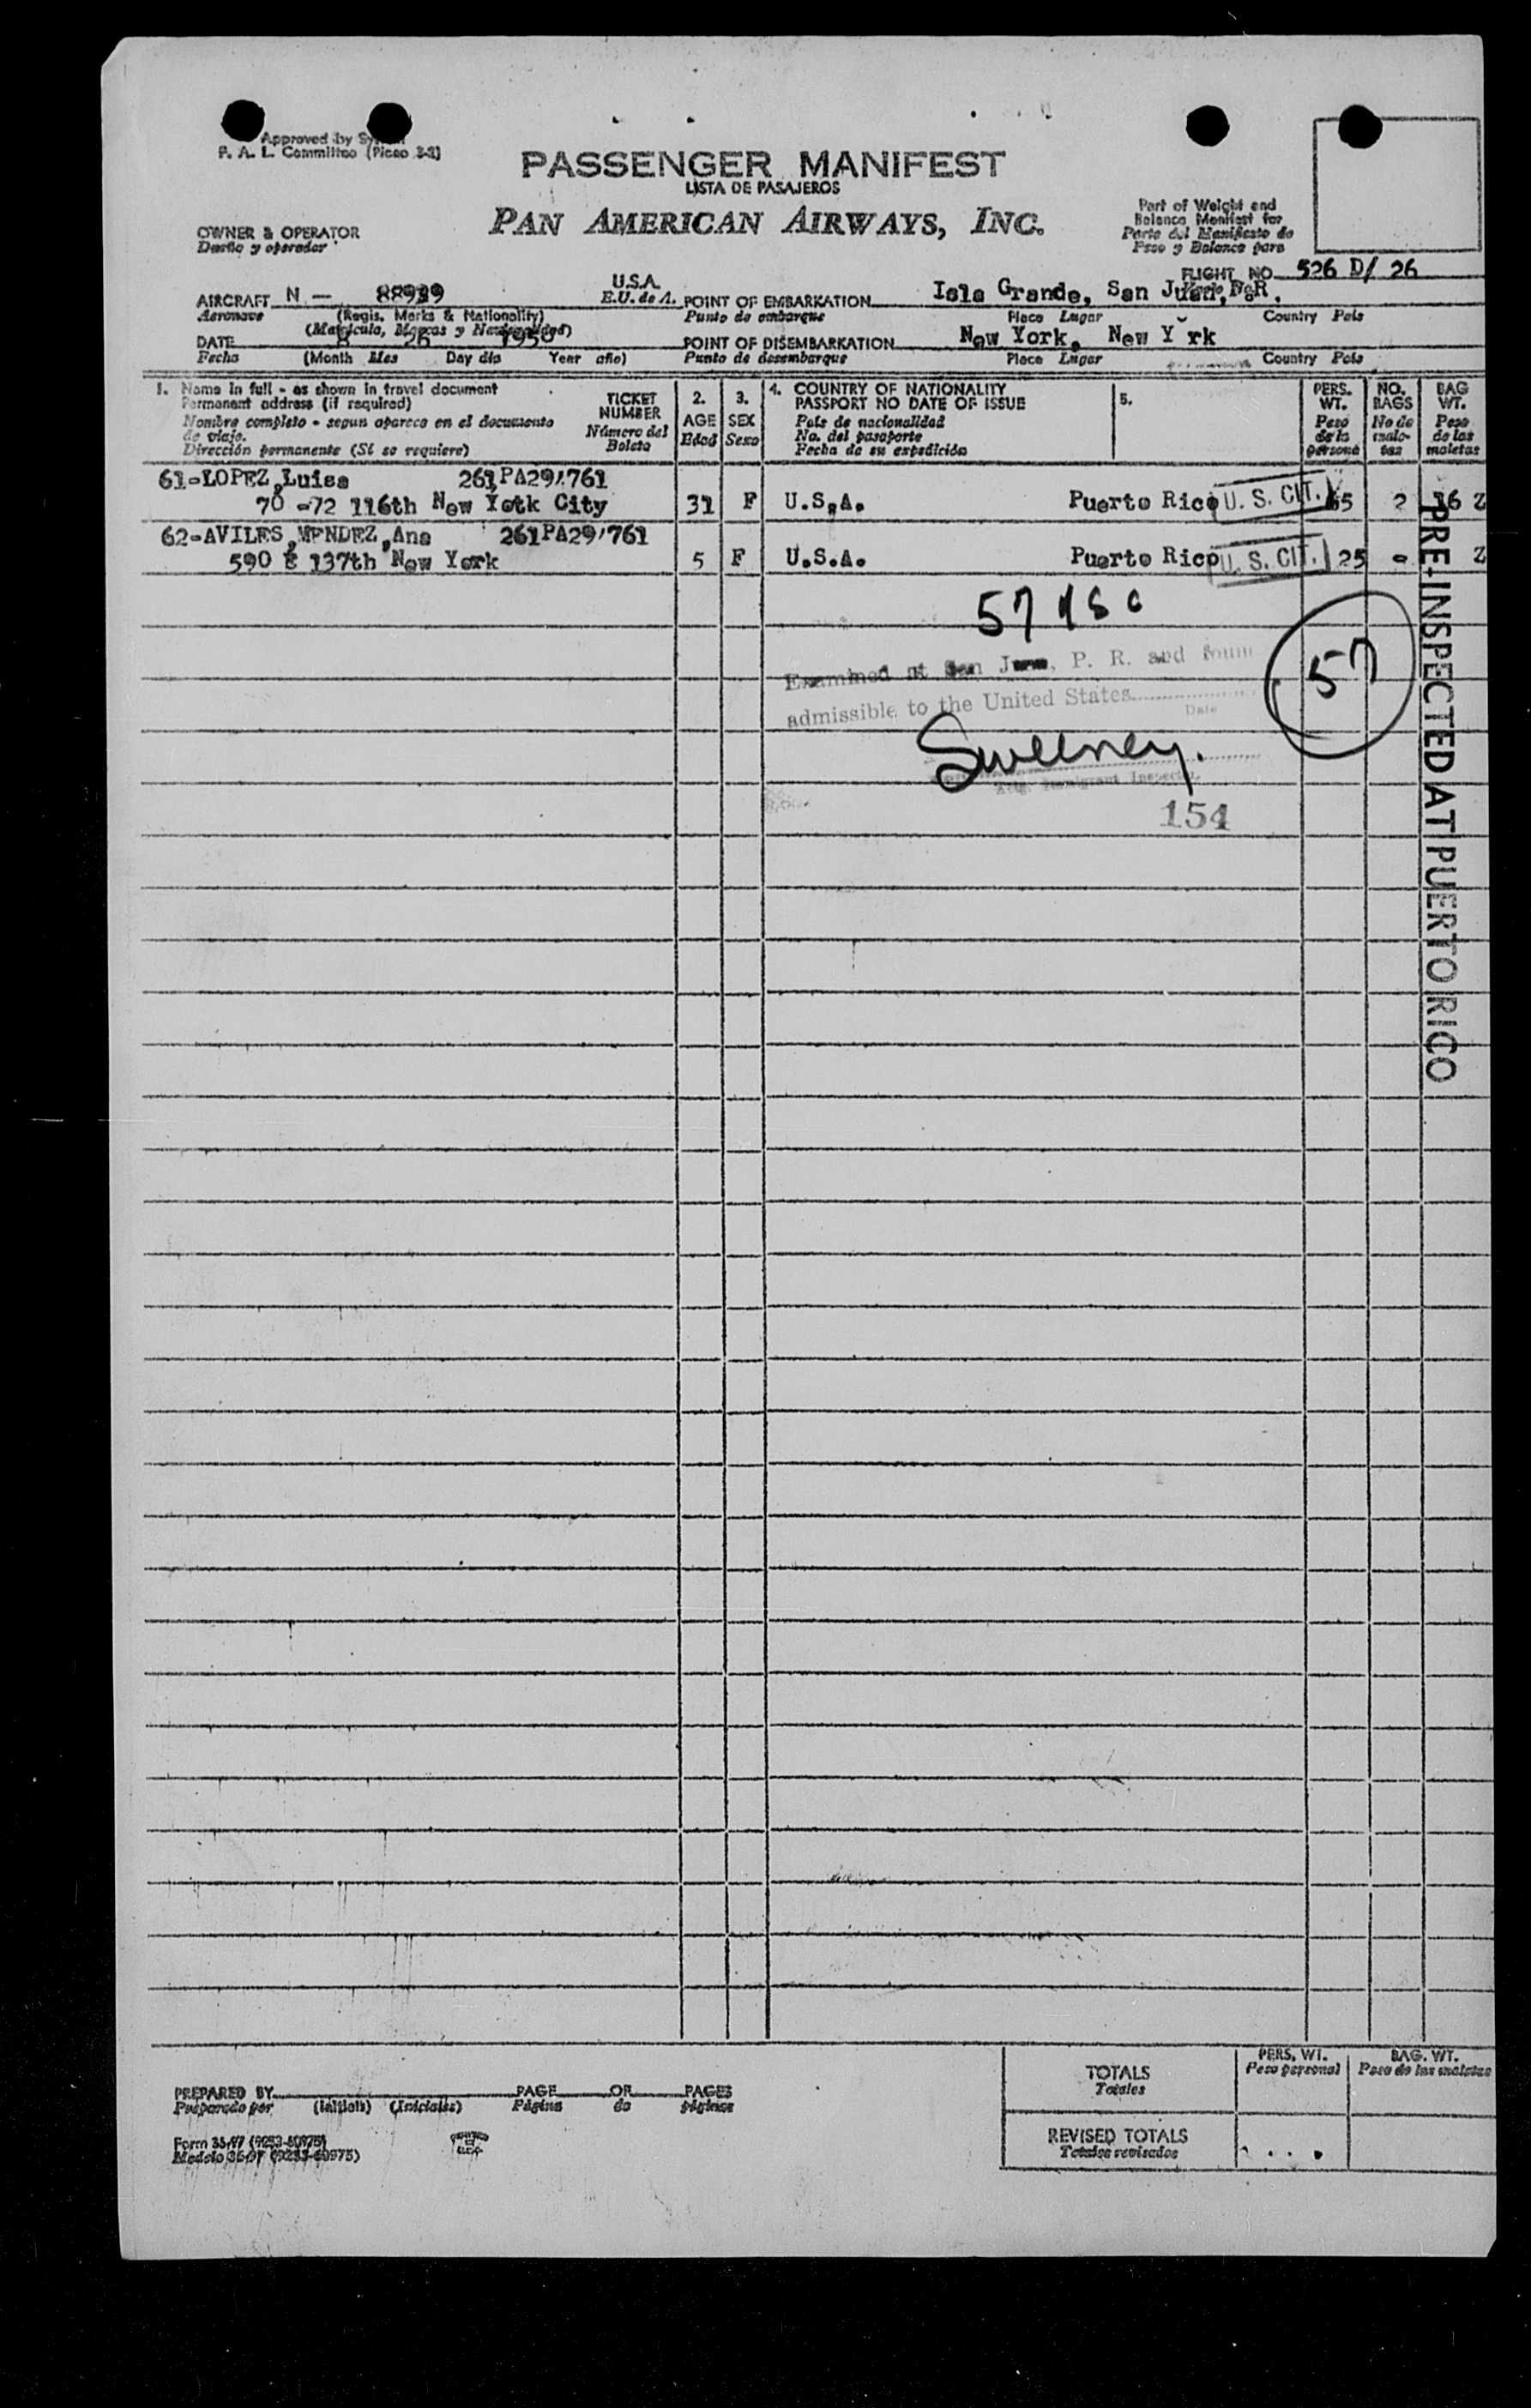 Approved by
P. A. L. Committee (Picao 3-3)
PASSENGER MANIFEST
LISTA DE PASAJEROS
PAN AMERICAN AIRWAYS, INC.
Part of Weight and
Balance Manifest for
Parte del Manifiesto de
Peso y Balance para
OWNER & OPERATOR
Dueño y operador
FLIGHT NO. 526 D/ 26
AIRCRAFT N - U.S.A.
Aeronave E.U. de A.
(Regis. Marks & Nationality)
(Matrícula, Marcas y Nacionalidad)
POINT OF EMBARKATION Isla Grande, San Juan, P.R.
Punto de embarque Place Lugar Country País
DATE 8 26 1950
Fecha (Month Mes Day día Year año)
POINT OF DISEMBARKATION New York, New Y rk
Punto de desembarque Place Lugar Country País
1. Name in full - as shown in travel document
Permanent address (if required)
Nombre completo - segun aparece en el documento
de viaje.
Dirección permanente (Si se requiere)
TICKET
NUMBER
Número del
Boleto
2.
AGE
Edad
3.
SEX
Sexo
4. COUNTRY OF NATIONALITY
PASSPORT NO DATE OF ISSUE
País de nacionalidad
No. del pasaporte
Fecha de su expedición
5.
PERS.
WT.
Peso
de la
persona
NO.
BAGS
No de
male-
tas
BAG
WT.
Peso
de las
maletas
61-LOPEZ,Luisa 261PA29/761
70 -72 116th New Yotk City 31 F U.S.A. Puerto Rico U. S. CIT. 2 16 Z
62-AVILES,MENDEZ,Ana 261PA29/761
590 E 137th New York 5 F U.S.A. Puerto Rico U. S. CIT. 25 - Z
57
57
Examined at San Juan, P. R. and foun
admissible to the United States
Date
Sweeney.
Immigrant Inspector
154
PRE-INSPECTED AT PUERTO RICO
PREPARED BY PAGE OF PAGES
Preparado por (Initials) (Iniciales) Página de páginas
TOTALS
Totales
PERS. WT.
Peso personal
BAG. WT.
Peso de las maletas
REVISED TOTALS
Totales revisados